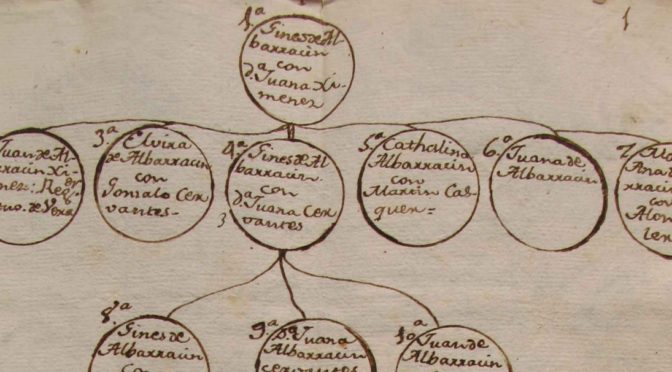 1.ª
Gines de Al-
barracin
con
d.ª Juana Xi-
menez
1
Juan de Al-
rracin Xi-
nez: Reg.or
3.ª
Elvira
de Albarracin
con
Gonzalo Cer
vantes-
4.ª
Gines de Al
barracin
con
d.ª Juana Cer
vantes
3
5.ª
Cathalina
Albarracin
con
Martin Cas
quer=
6.ª
Juana de
Albarracin
7.
Ana
rracin
con
Alon
len
8.ª
Gines de
Albarracin
con
9.ª
D.ª Juana
Albarracin
cervantes
10.ª
Juan de
Albarracin